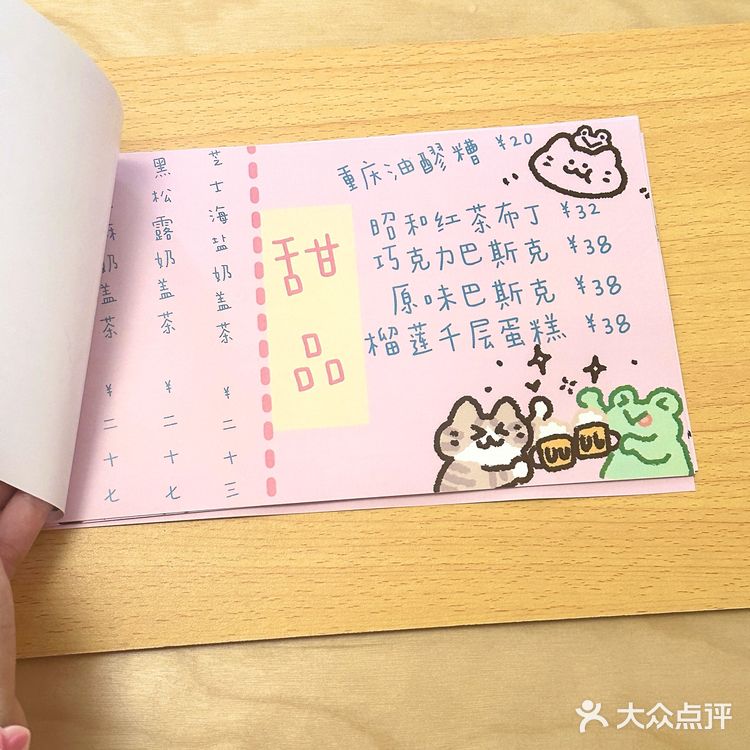 重庆油醪糟 ¥20
甜品
昭和红茶布丁 ¥32
巧克力巴斯克 ¥38
原味巴斯克 ¥38
榴莲千层蛋糕 ¥38
芝士海盐奶盖茶 ¥二十三
黑松露奶盖茶 ¥二十七
奶盖茶 ¥二十七
大众点评